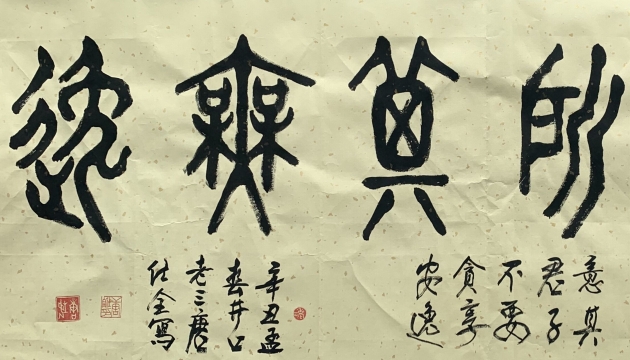 所其無逸
意其
君子
不要
貪享
安逸
辛丑孟
春井口
老三唐
仕全寫